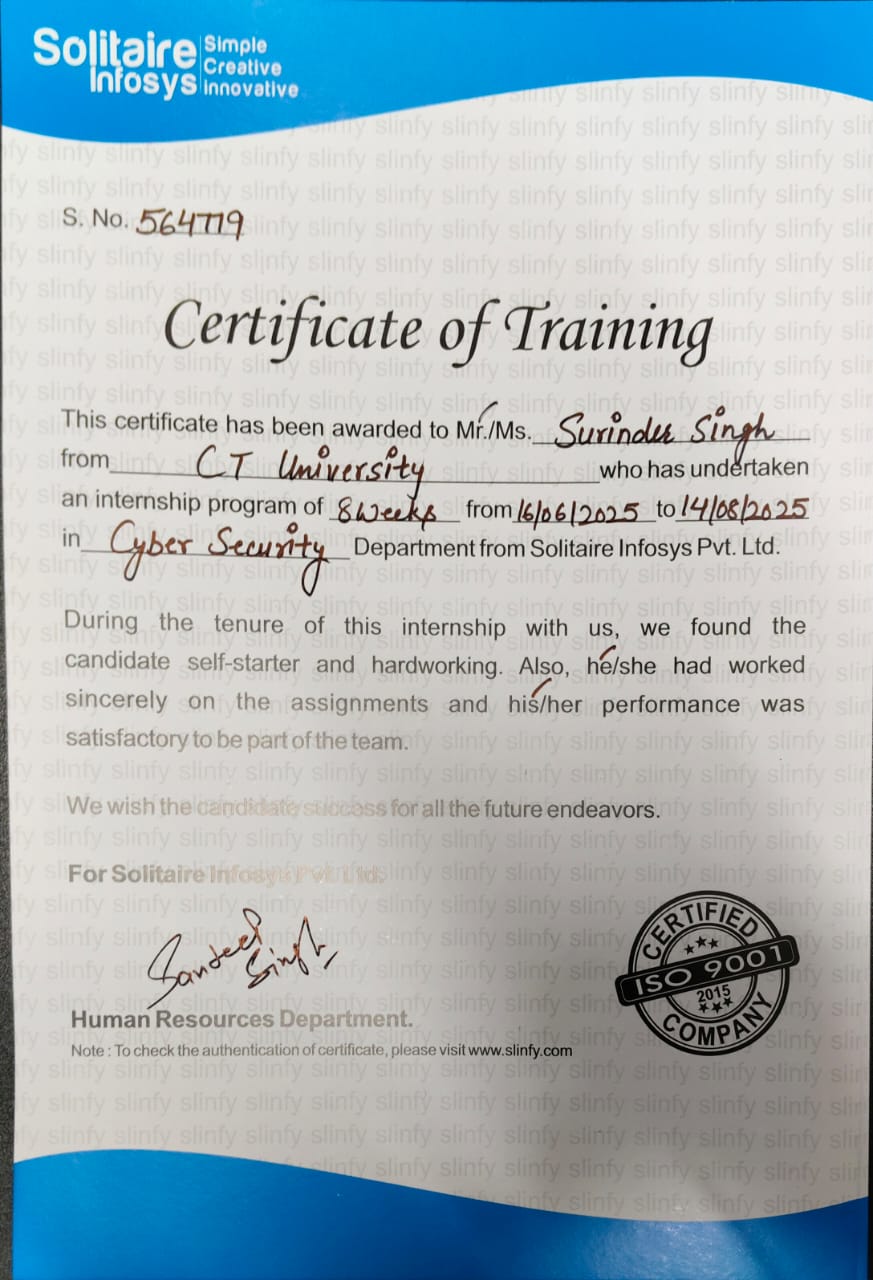 Solitaire
Infosys
Simple
Creative
Innovative
S. No. 564779
Certificate of Training
This certificate has been awarded to Mr./Ms. Surinder Singh
from CT University who has undertaken
an internship program of 8 weeks from 16/06/2025 to 14/08/2025
in Cyber Security Department from Solitaire Infosys Pvt. Ltd.
During the tenure of this internship with us, we found the
candidate self-starter and hardworking. Also, he/she had worked
sincerely on the assignments and his/her performance was
satisfactory to be part of the team.
We wish the candidate success for all the future endeavors.
For Solitaire Infosys Pvt. Ltd.
Sandeep
Singh
Human Resources Department.
Note : To check the authentication of certificate, please visit www.slinfy.com
CERTIFIED
ISO 9001
2015
COMPANY